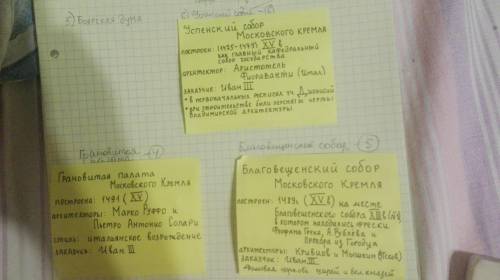 3) Боярская дума
Успенский собор
Московского Кремля
построен: (1475-1479) XV в
как главный кафедральный
собор государства
архитектор: Аристотель
Фиораванти (Итал)
заказчик: Иван III
• в первоначальных росписях уч. Дионисий
при строительстве были черты
Владимирской архитектуры.
Грановитая
Благовещенский собор (5)
Грановитая палата
Московского Кремля
построена: 1491 (XV)
архитекторы: Марко Руффо и
Пьетро Антонио Солари
стиль: итальянское возрождение
заказчик: Иван III
Благовещенский собор
Московского Кремля
построен: (XV в) на месте
Благовещенского собора
в котором находились фрески
Феофана Грека, А. Рублёва и
Прохора из Городца
архитекторы: Кривцов и Мышкин (Псков)
заказчик: Иван III
церковь царей и вел. князей